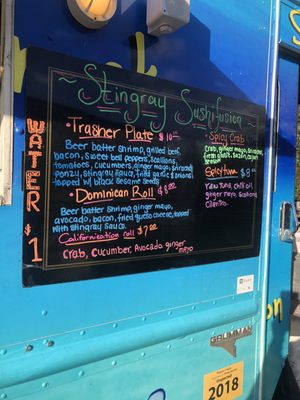 ~ Stingray Sushifusion ~
WATER $1
• Trasher Plate $10
Beer batter shrimp, grilled beef,
bacon, sweet bell peppers, scallions,
tomatoes, cucumbers, ginger mayo,
ponzu, stingray sauce, fried garlic & onions
topped w/ black sesame seeds
• Dominican Roll $8.00
Beer batter shrimp, ginger mayo,
avocado, bacon, fried queso cheese, topped
with stingray sauce.
Californication roll $7.00
Crab, cucumber, Avocado ginger
mayo
• Spicy Crab
Crab, ginger mayo,
Spicytuna $8
raw tuna, chili oil
ginger mayo, scallions
cilantro
GRUMMAN
2018